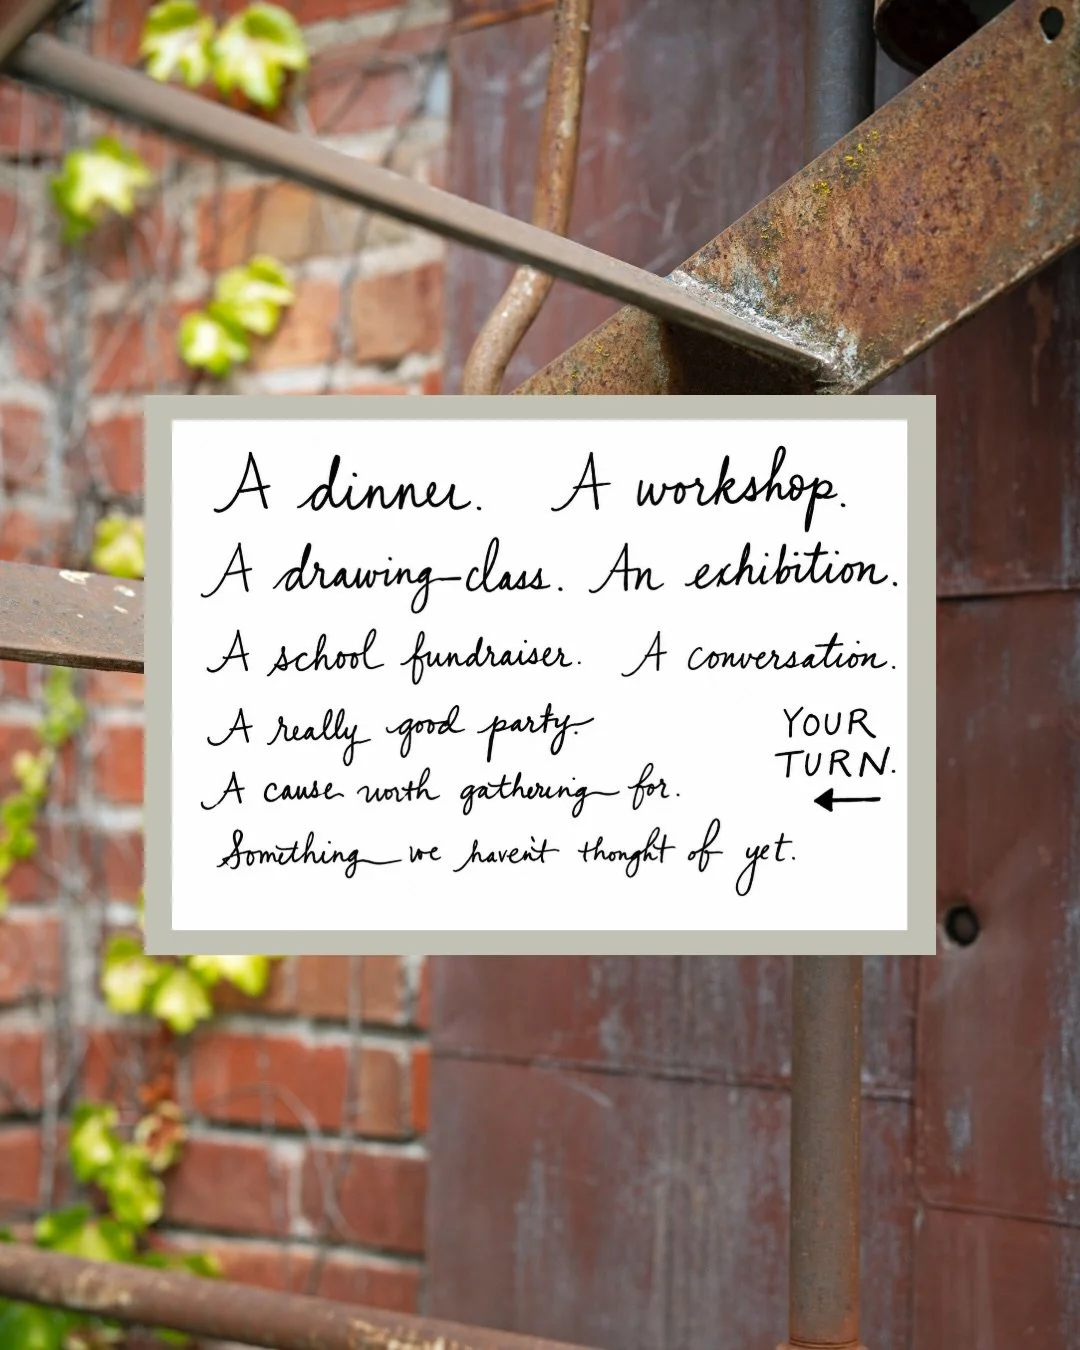 A dinner. A workshop.
A drawing class. An exhibition.
A school fundraiser. A conversation.
A really good party.
YOUR
TURN.
A cause worth gathering for.
Something we haven't thought of yet.